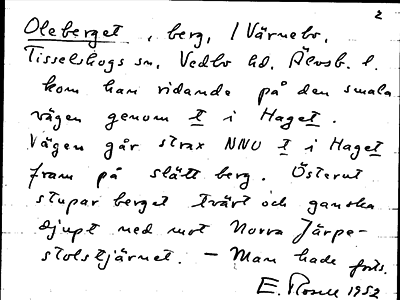 2
Oleberget, berg, i Värnebo,
Tisselskogs sn, Vedbo hd, Älvsb. l.
kom han ridande på den smala
vägen genom t i Haget.
Vägen går strax NNO t i Haget
fram på slätt berg. Österut
stupar berget tvärt och ganska
djupt ned mot Norra Järpe-
stolstjärnet. – Man hade forts.
E. Rosell 1952